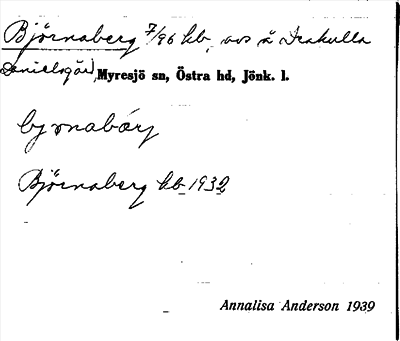 Björnaberg 7/96 kb, avs å Drakulla
Danielsgård, Myresjö sn, Östra hd, Jönk. l.
bjơnabárj
Björnaberg kb 1932
Annalisa Anderson 1939